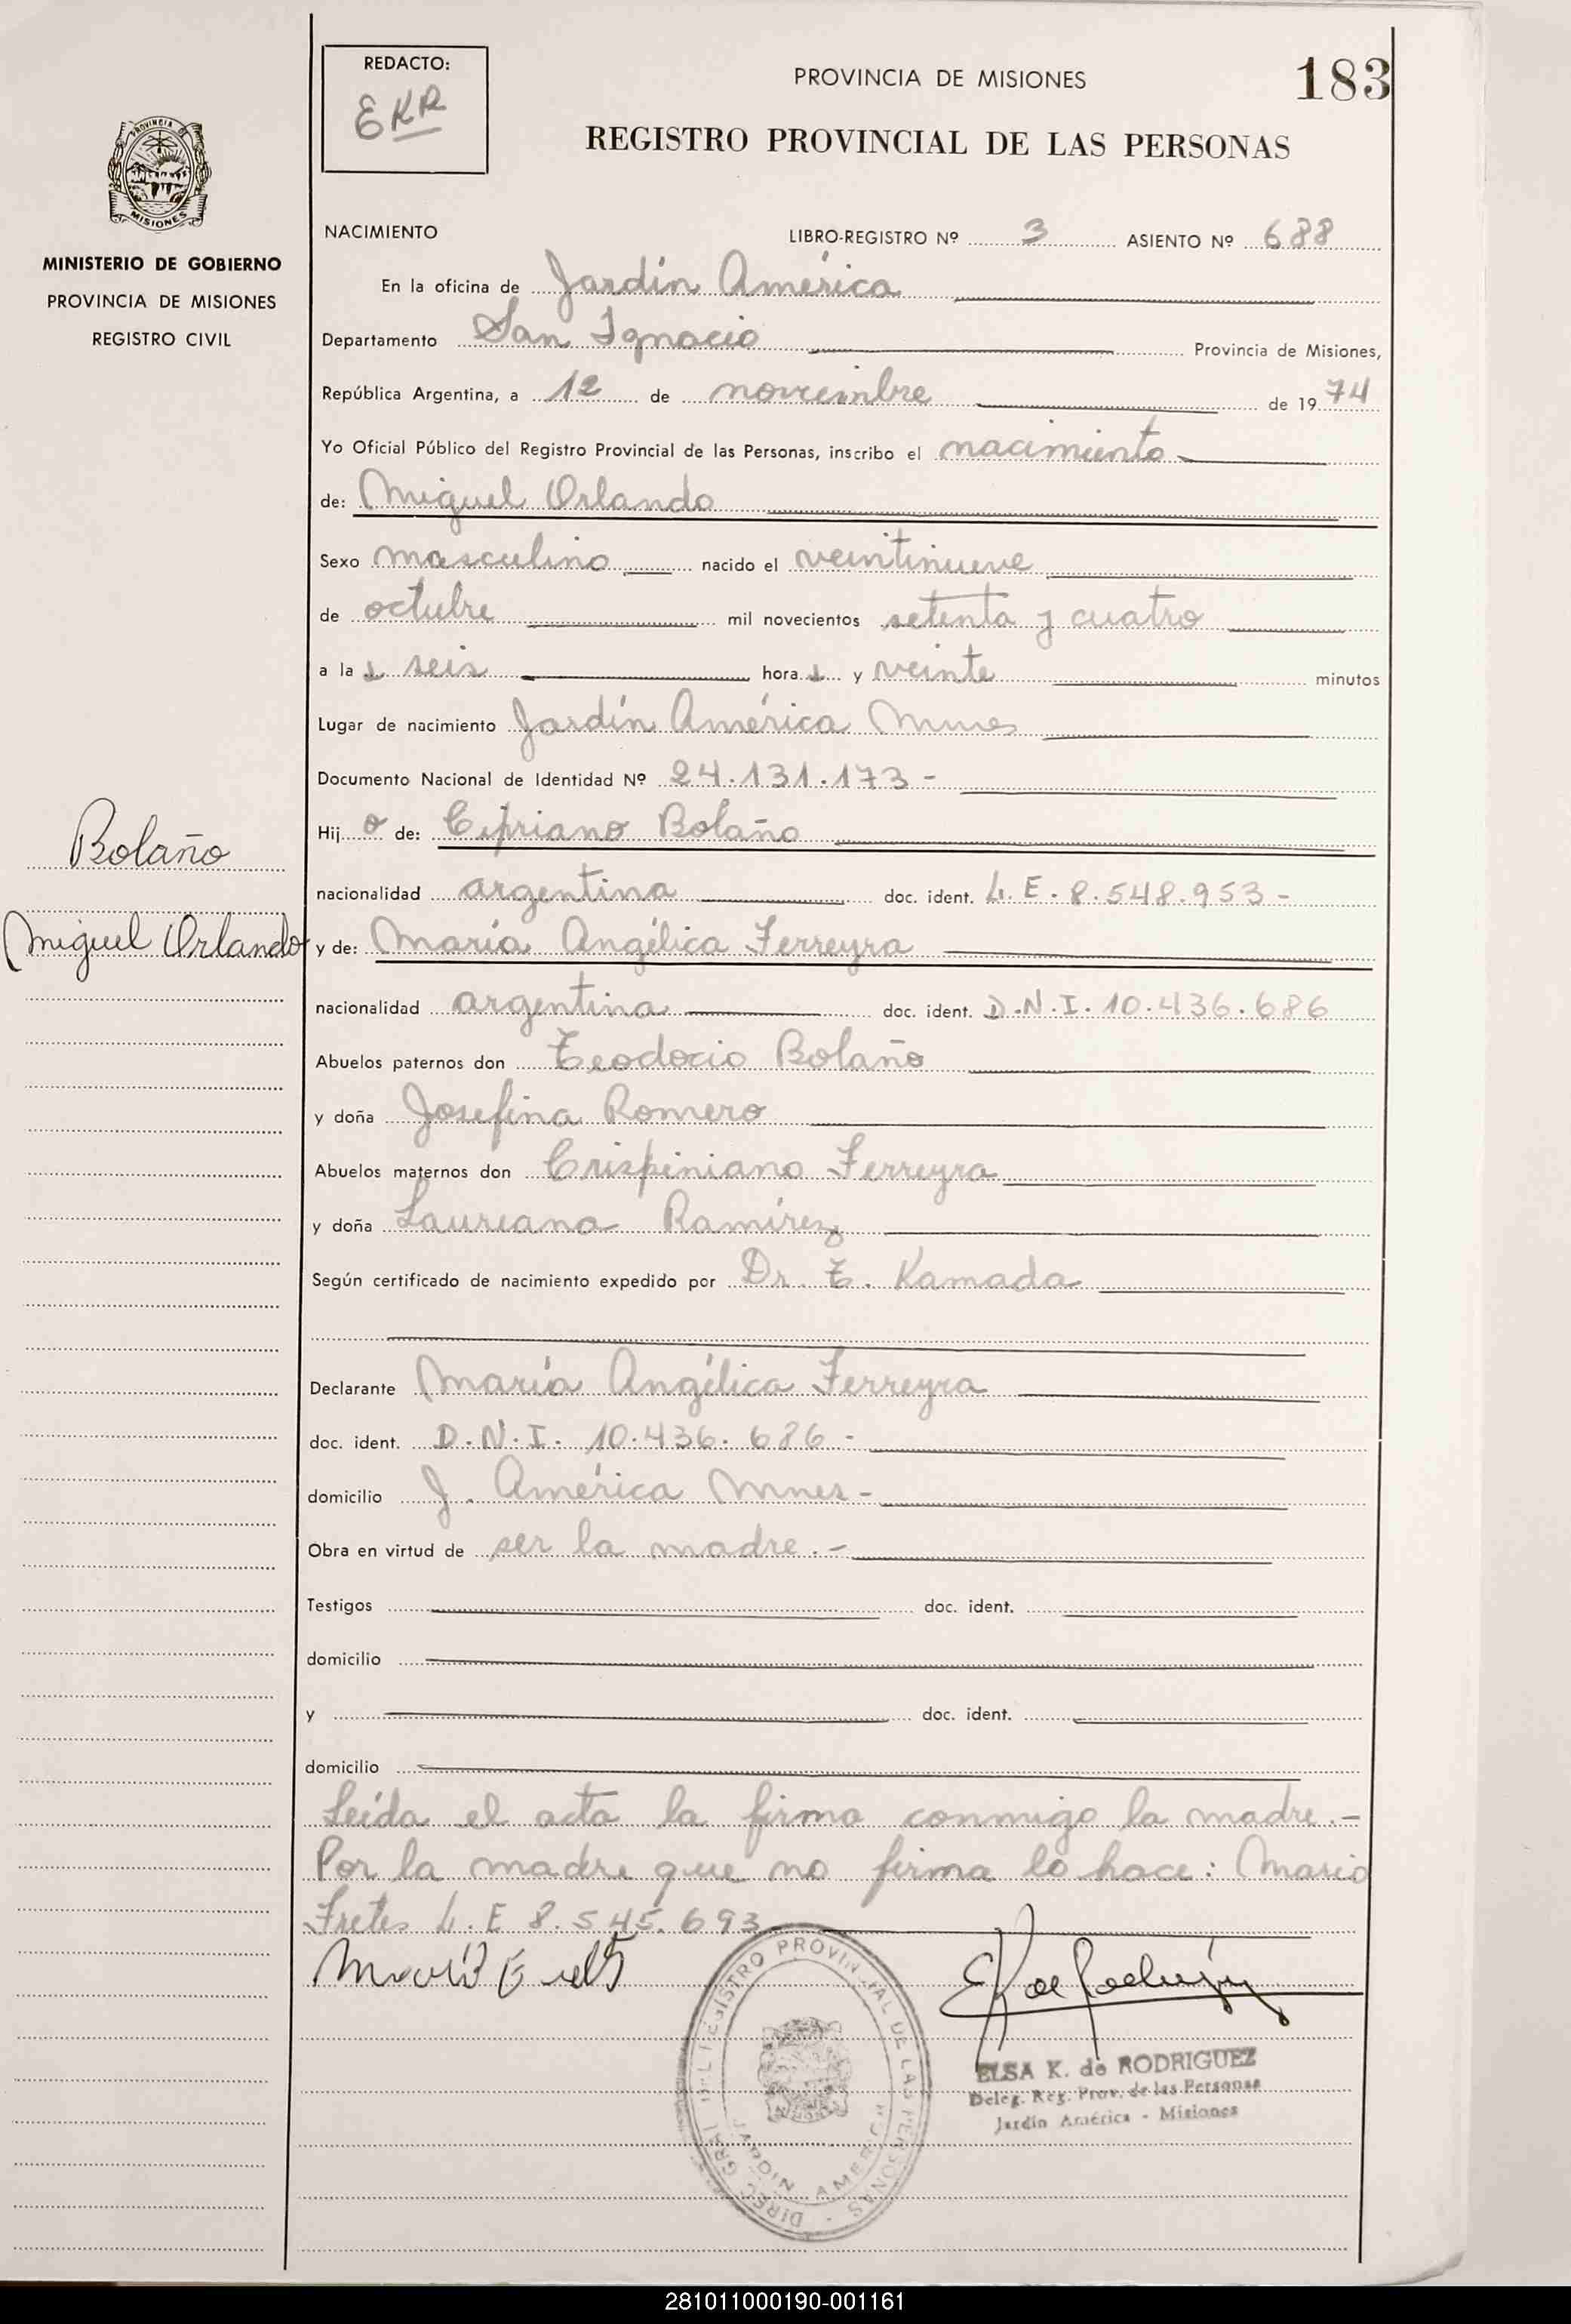 REDACTO:
EKR
PROVINCIA DE MISIONES
183
REGISTRO PROVINCIAL DE LAS PERSONAS
PROVINCIA DE
MISIONES
MINISTERIO DE GOBIERNO
PROVINCIA DE MISIONES
REGISTRO CIVIL
NACIMIENTO LIBRO-REGISTRO Nº 3 ASIENTO Nº 688
En la oficina de Jardín América
Departamento San Ignacio Provincia de Misiones,
República Argentina, a 12 de noviembre de 1974
Yo Oficial Público del Registro Provincial de las Personas, inscribo el nacimiento
de: Miguel Orlando
Sexo masculino nacido el veintinueve
de octubre mil novecientos setenta y cuatro
a la s seis hora s y veinte minutos
Lugar de nacimiento Jardín América Mnes
Documento Nacional de Identidad Nº 24.131.173 -
Bolaño
Miguel Orlando
Hij o de: Cipriano Bolaño
nacionalidad argentina doc. ident. L. E. 8.548.953 -
y de: María Angélica Ferreyra
nacionalidad argentina doc. ident. D.N.I. 10.436.686
Abuelos paternos don Teodocio Bolaño
y doña Josefina Romero
Abuelos maternos don Crispiniano Ferreyra
y doña Laureana Ramírez
Según certificado de nacimiento expedido por Dr. T. Kamada
Declarante María Angélica Ferreyra
doc. ident. D.N.I. 10.436.686 -
domicilio J. América Mnes -
Obra en virtud de ser la madre. -
Testigos doc. ident.
domicilio
y doc. ident.
domicilio
Leída el acta la firma conmigo la madre. -
Por la madre que no firma lo hace: Mario
Fretes L. E 8.545.693
DIREC. GRAL. DEL REGISTRO PROVINCIAL DE LAS PERSONAS -
JARDIN AMERICA
ELSA K. de RODRIGUEZ
Deleg. Reg. Prov. de las Personas
Jardín América - Misiones
281011000190-001161